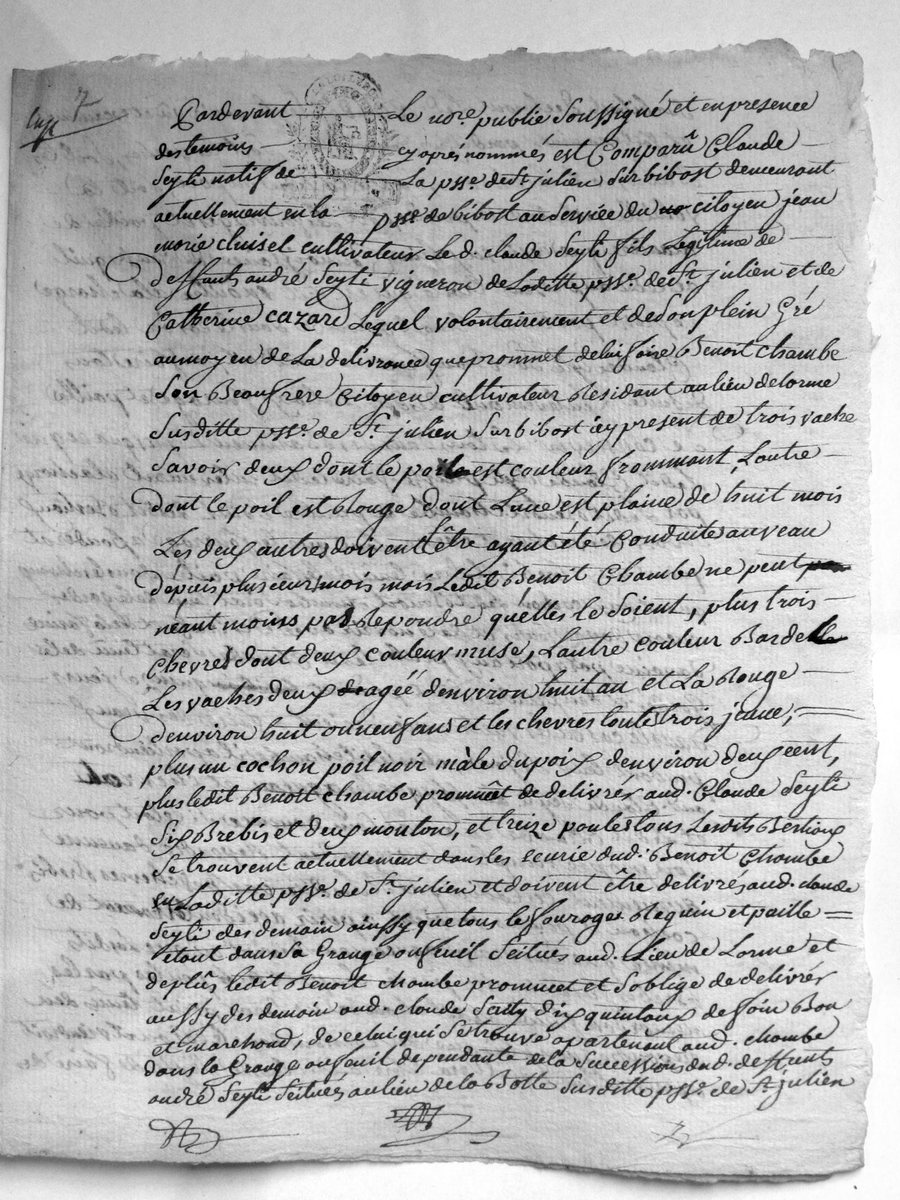 7
Pardevant Le nore. publie Soussigné et en presence
des temoins cy après nommés est Comparû Claude
Seyti natif de La psse. de St julien Sur bibost demeurant
actuellement en la psse. de bibost au Service du citoyen jean
marie cluisel cultivateur. Le d. claude Seyti fils Legitime de
Deffunt andré Seyti vigneron de Laditte psse. de St. julien et de
Catherine Cazard Lequel volontairement et de Son plein Gré
aumoyen de La delivrance que promet de lui faire Benoit chambe
Son Beaufrere Citoyen cultivateur Residant au lieu de lorme
Susditte psse. de St. julien Sur bibost icy present de trois vache
Savoir deux dont le poil est couleur frommant, Lautre
dont le poil est Rouge dont Lune est plaine de huit mois
Les deux autres doivent Lêtre ayant été Conduite au veau
depuis plusieur mois mois Ledit Benoit Chambe ne peut
neant moins pas Repondre quelles le Soient, plus trois
Chevres dont deux couleur muse, Lautre couleur Bardelle
Les vaches deux agée denviron huit an et La Rouge
denviron huit ou neuf ans et les chevres toute trois jeune,
plus un cochon poil noir mâle du poix denviron deux cent,
plus ledit Benoit chambe prommet de delivrér aud. Claude Seyti
Six Brebis et deux mouton, et treize poules tous Lesdits Bestiaux
Se trouvent actuellement dans les ecurie dud. Benoit Chambe
en Laditte psse. de St. julien et doivent être delivrés aud. claude
Seyti des demain ainssy que tous le fourage Reguin et paille
étant dans sa Grange ou feuil Seitués aud. Lieu de Lorme et
de plûs ledit Benoit chambe prommet et Soblige de delivrér
aussy des demain aud. claude Seity dix quintaux de foin Bon
et marchand, de celui qui Se trouve apartenant aud. chambe
dans la Grange ou feuil dependante de la Succession dud. deffunt
andré Seyti Seitués au lieu de la Botte Susditte psse. de St julien